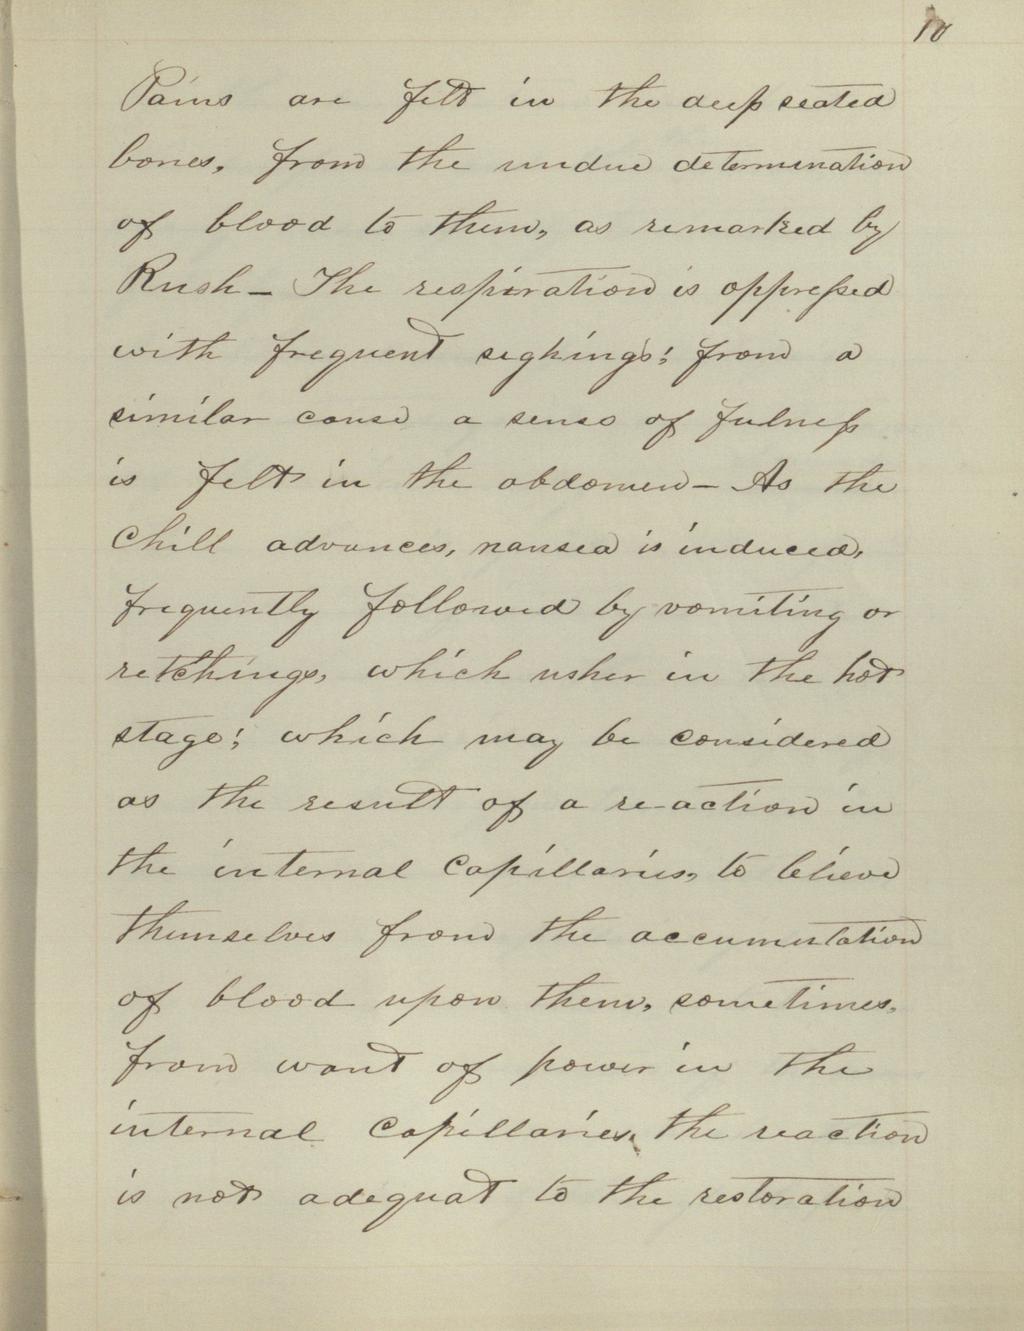 10
Pains are felt in the deep seated
bones, from the undue determination
of blood to them, as remarked by
Rush – The respiration is oppressed
with frequent sighings; from a
similar cause a sense of fulness
is felt in the abdomen – As the
Chill advances, nausea is induced,
frequently followed by vomiting or
retchings, which usher in the hot
stage; which may be considered
as the result of a re-action in
the internal Capillaries, to lelieve
themselves from the accumulation
of blood upon them, sometimes,
from want of power in the
internal Capillaries, the reaction
is not adequat to the restoration